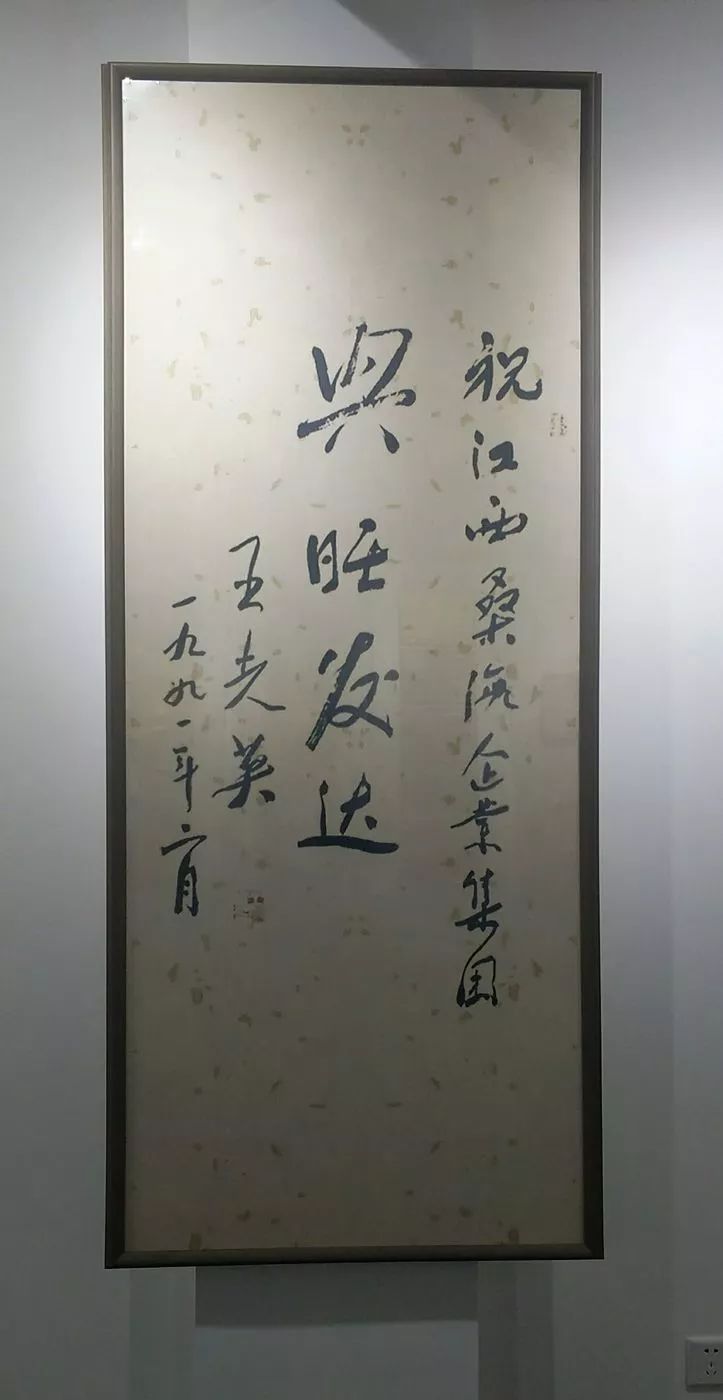 祝江西桑海企业集团
兴旺发达
王光英
一九九一年六月